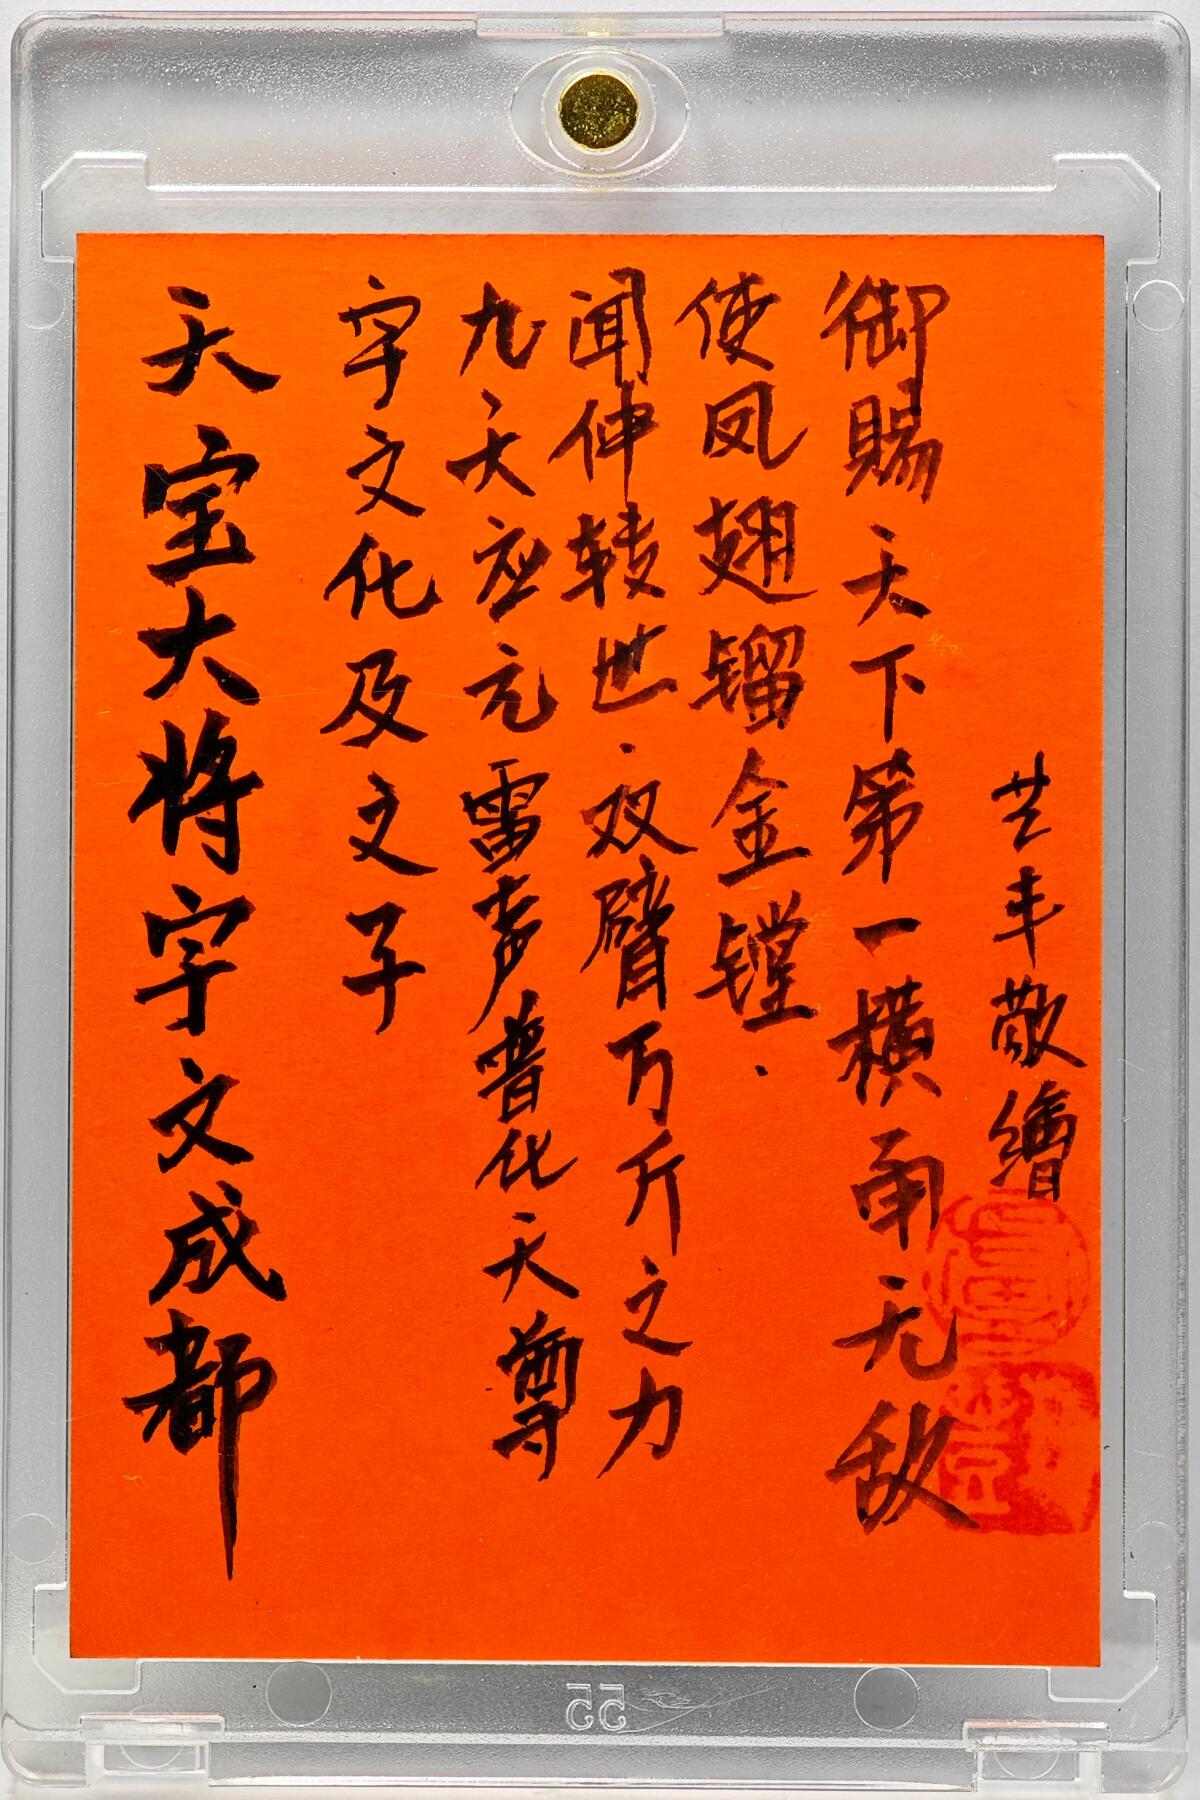 天宝大将宇文成都
宇文化及之子
九天应元雷声普化天尊
闻仲转世.双臂万斤之力
使凤翅镏金镋.
御賜天下第一横甬无敌
艺丰敬繪
55